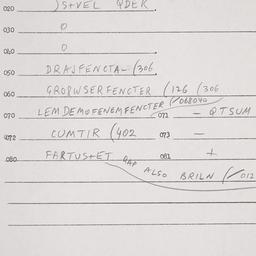 020 ) S+VEL QDER
030 0
040 0
050 DRAJFENCTA- (306
060 GROPWSERFENCTER (126 (306
(/068040
070 LEMDEMOFENEMFENCTER 071 - QTSUM
072 CUMTIR (402 073 -
080 FARTUS+ET 081 +
ALSO BRILN (/012